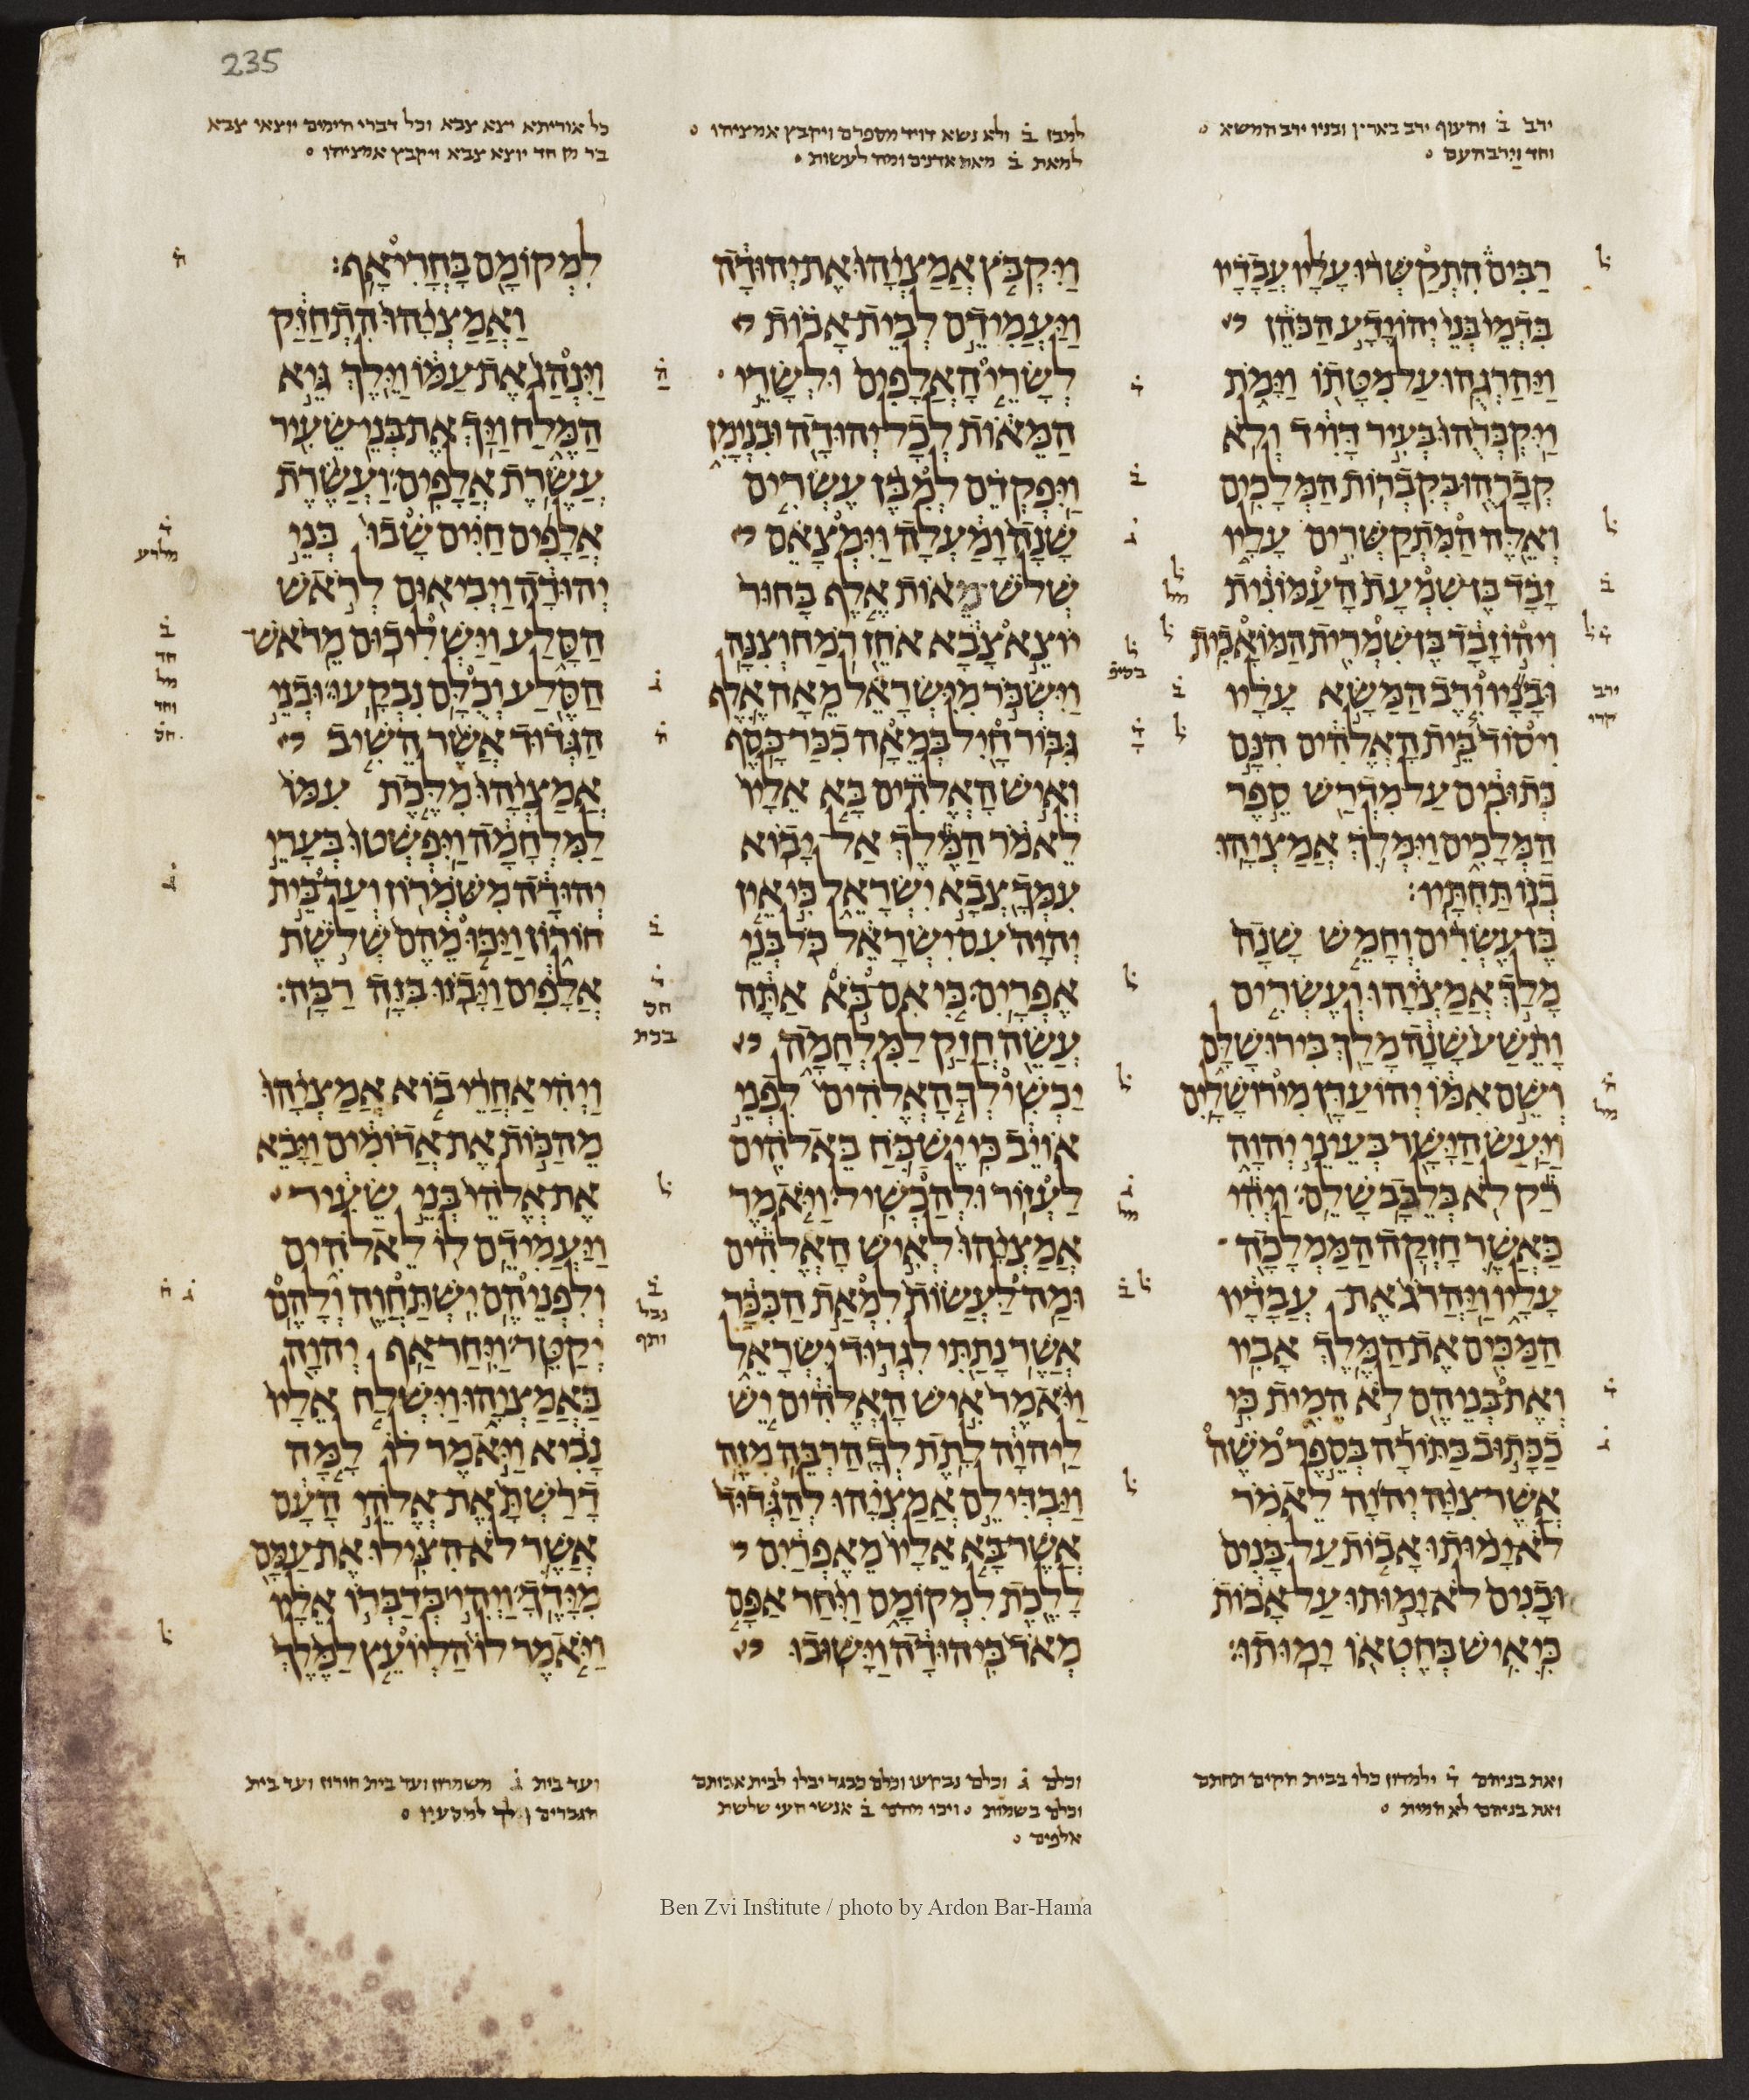 235
ירב ב והעוף ירב בארץ ובניו ירב המשא
וחד וירב העם
למבן ב ולא נשא דויד מספרם ויקבץ אמציהו
למאת ב מאת אדנים ומה לעשות
כל אוריתא יצא צבא וכל דברי הימים יוצאי צבא
בר מן חד יוצא צבא ויקבץ אמציהו
רבים התקשרו עליו עבדיו
בדמי בני יהוידע הכהן
ויהרגהו על מטתו וימת
ויקברהו בעיר דויד ולא
קברהו בקברות המלכים
ואלה המתקשרים עליו
זבד בן שמעת העמונית
ויהוזבד בן שמרית המואבית
ובניו ורב המשא עליו
ויסוד בית האלהים הנם
כתובים על מדרש ספר
המלכים וימלך אמציהו
בנו תחתיו׃
בן עשרים וחמש שנה
מלך אמציהו ועשרים
ותשע שנה מלך בירושלם
ושם אמו יהועדן מירושלים
ויעש הישר בעיני יהוה
רק לא בלבב שלם׃ ויהי
כאשר חזקה הממלכה
עליו ויהרג את עבדיו
המכים את המלך אביו
ואת בניהם לא המית כי
ככתוב בתורה בספר משה
אשר צוה יהוה לאמר
לא ימותו אבות על בנים
ובנים לא ימותו על אבות
כי איש בחטאו ימותו׃
ויקבץ אמציהו את יהודה
ויעמידם לבית אבות
לשרי האלפים ולשרי
המאות לכל יהודה ובנימן
ויפקדם למבן עשרים
שנה ומעלה וימצאם
שלש מאות אלף בחור
יוצא צבא אחז רמח וצנה׃
וישכר מישראל מאה אלף
גבור חיל במאה ככר כסף׃
ואיש האלהים בא אליו
לאמר המלך אל יבוא
עמך צבא ישראל כי אין
יהוה עם ישראל כל בני
אפרים׃ כי אם בא אתה
עשה חזק למלחמה
יכשילך האלהים לפני
אויב כי יש כח באלהים
לעזור ולהכשיל׃ ויאמר
אמציהו לאיש האלהים
ומה לעשות למאת הככר
אשר נתתי לגדוד ישראל
ויאמר איש האלהים יש
ליהוה לתת לך הרבה מזה׃
ויבדילם אמציהו להגדוד
אשר בא אליו מאפרים
ללכת למקומם ויחר אפם
מאד ביהודה וישובו
למקומם בחרי אף׃
ואמציהו התחזק
וינהג את עמו וילך גיא
המלח ויך את בני שעיר
עשרת אלפים׃ ועשרת
אלפים חיים שבו בני
יהודה ויביאום לראש
הסלע וישליכום מראש
הסלע וכלם נבקעו׃ ובני
הגדוד אשר השיב
אמציהו מלכת עמו
למלחמה ויפשטו בערי
יהודה משמרון ועד בית
חורון ויכו מהם שלשת
אלפים ויבזו בזה רבה׃
ויהי אחרי בוא אמציהו
מהכות את אדומים ויבא
את אלהי בני שעיר
ויעמידם לו לאלהים
ולפניהם ישתחוה ולהם
יקטר׃ ויחר אף יהוה
באמציהו וישלח אליו
נביא ויאמר לו למה
דרשת את אלהי העם
אשר לא הצילו את עמם
מידך׃ ויהי בדברו אליו
ויאמר לו הליועץ למלך
ואת בניהם ד ילמדון כלו בבית הקים תחתם
ואת בניהם לא המית
וכלם ג וכלם נבקעו וכלם כבגד יבלו לבית אבותם
וכלם בשמות ויכו מהם ב אנשי העי שלשת
אלפים
ועד בית ג משמרון ועד בית חורון ועד בית
הגברים וילך למסעיו
Ben Zvi Institute / photo by Ardon Bar-Hama